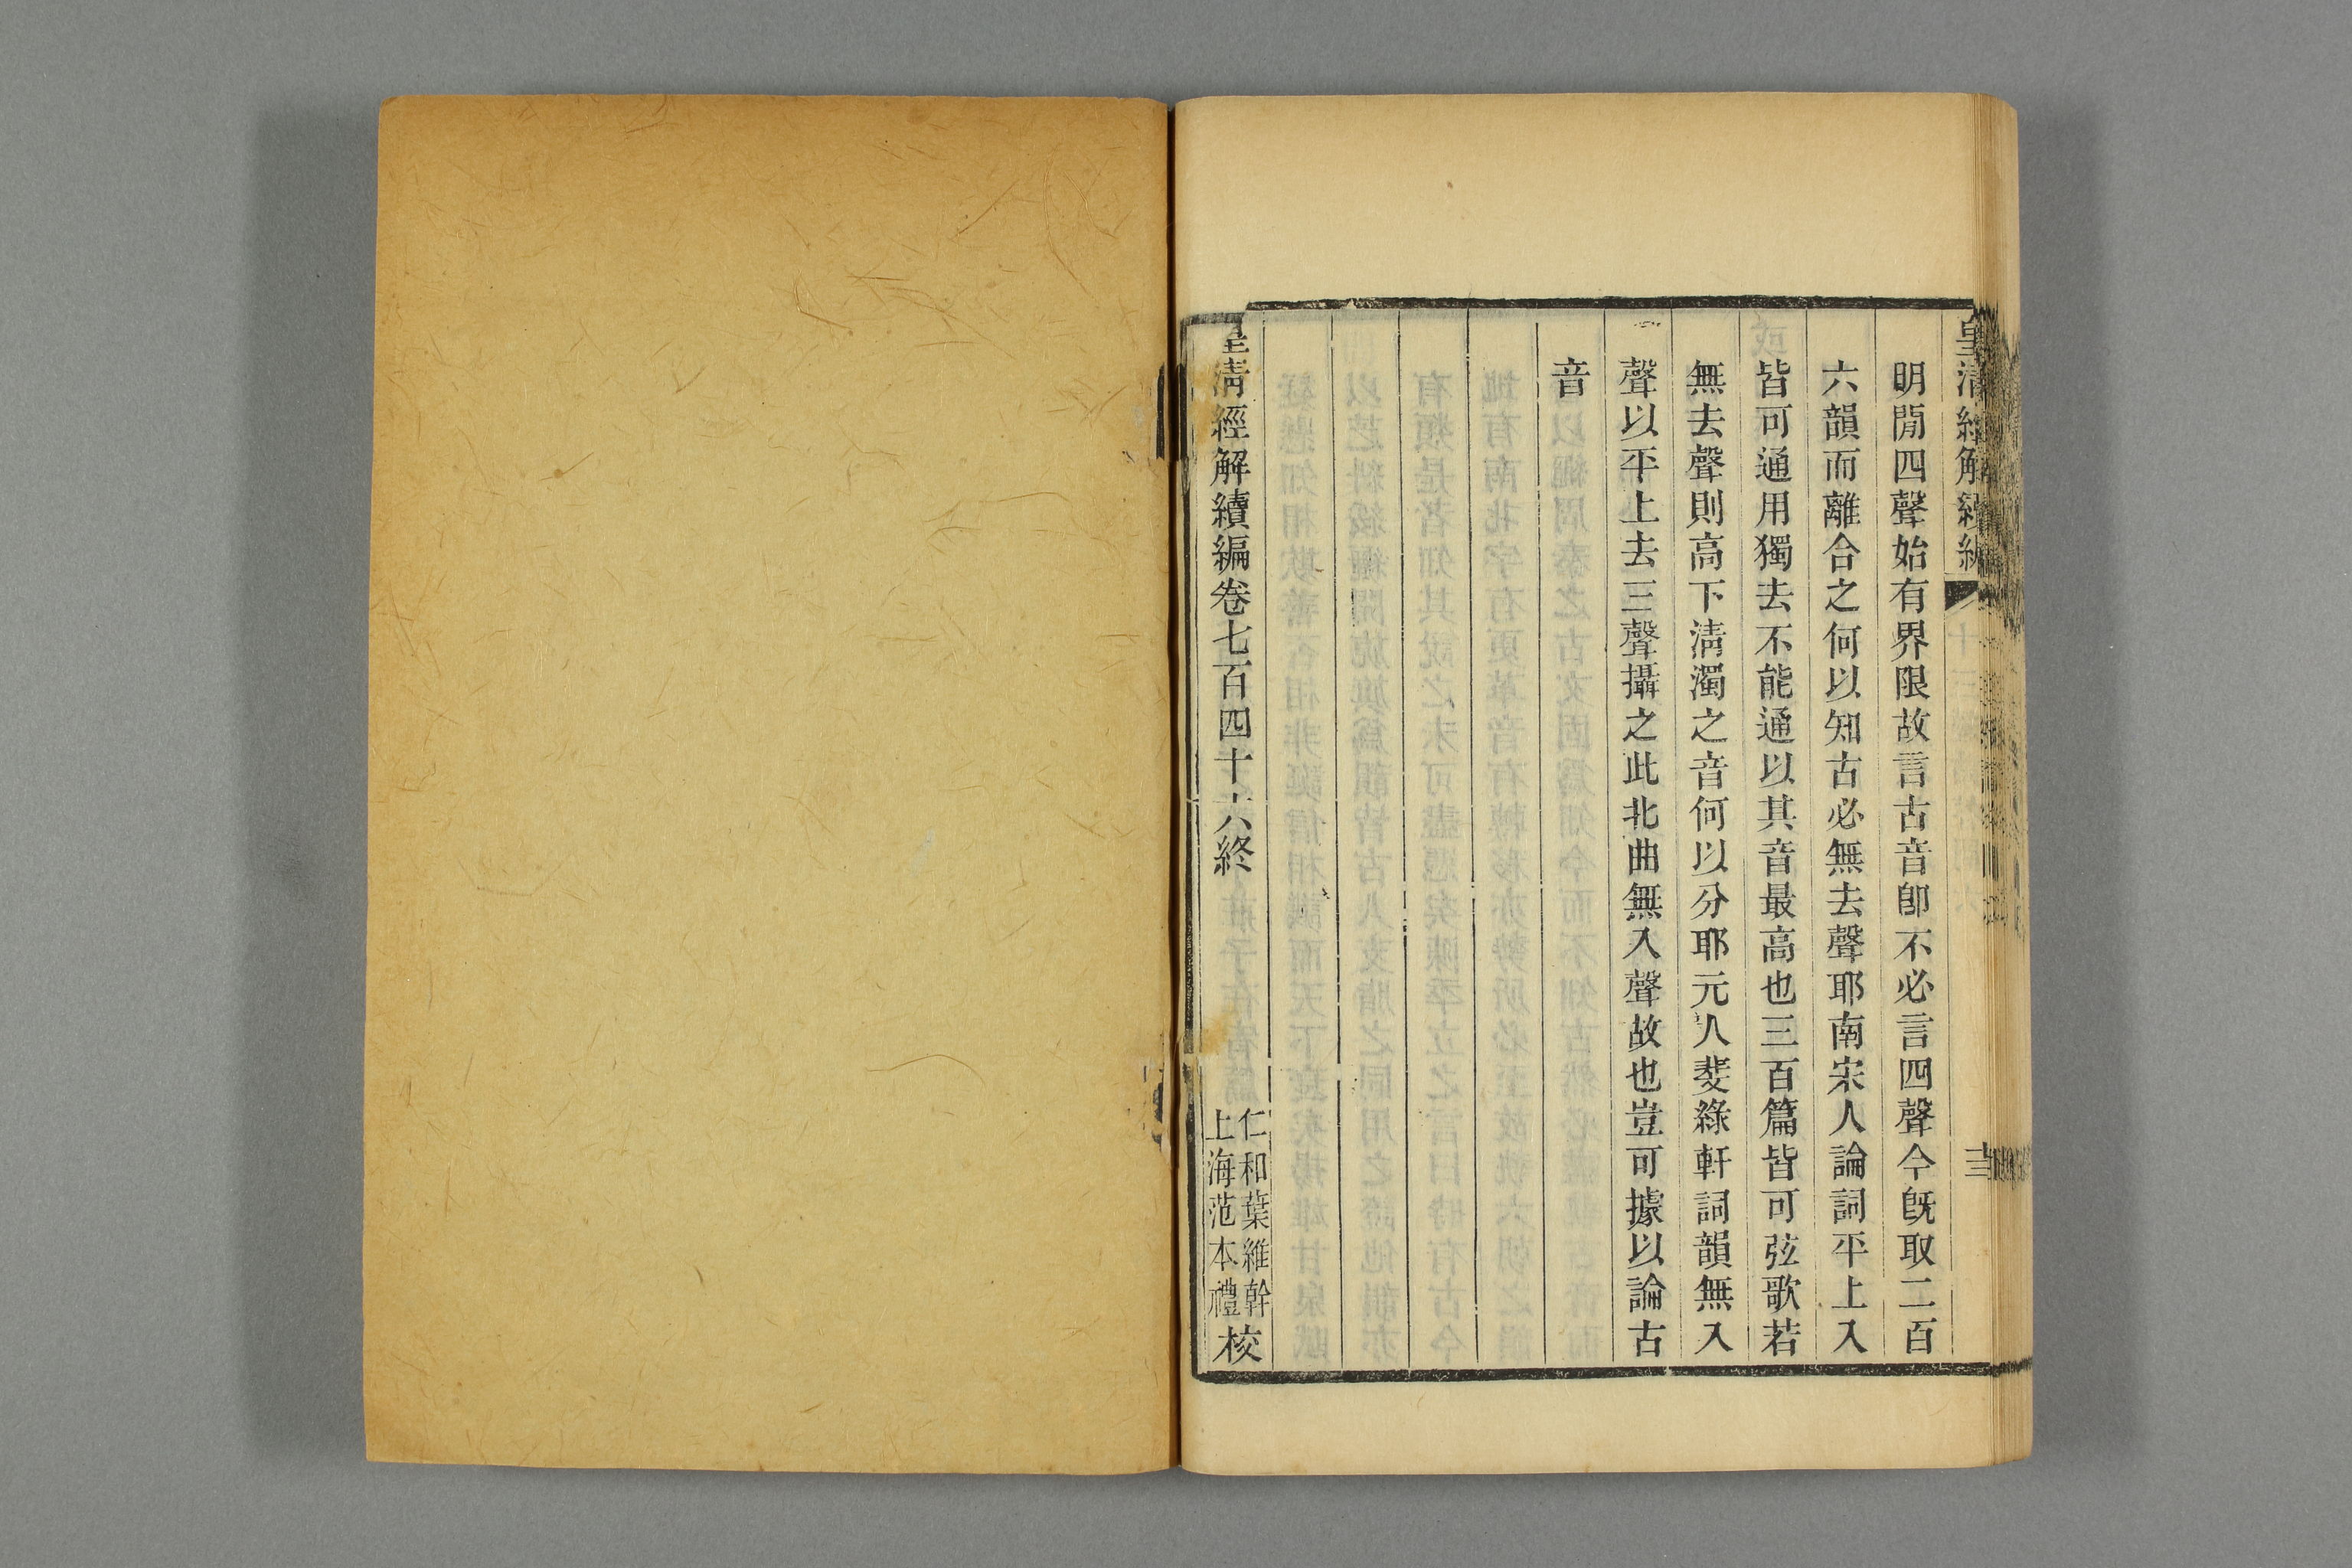 皇清經解續編
十三
明閒四聲始有界限故言古音卽不必言四聲今旣取二百
六韻而離合之何以知古必無去聲耶南宋人論詞平上入
皆可通用獨去不能通以其音最高也三百篇皆可弦歌若
無去聲則高下淸濁之音何以分耶元人菉斐軒詞韻無入
聲以平上去三聲攝之此北曲無入聲故也豈可據以論古
音
皇淸經解續編卷七百四十六終
仁和葉維幹
上海范本禮
校